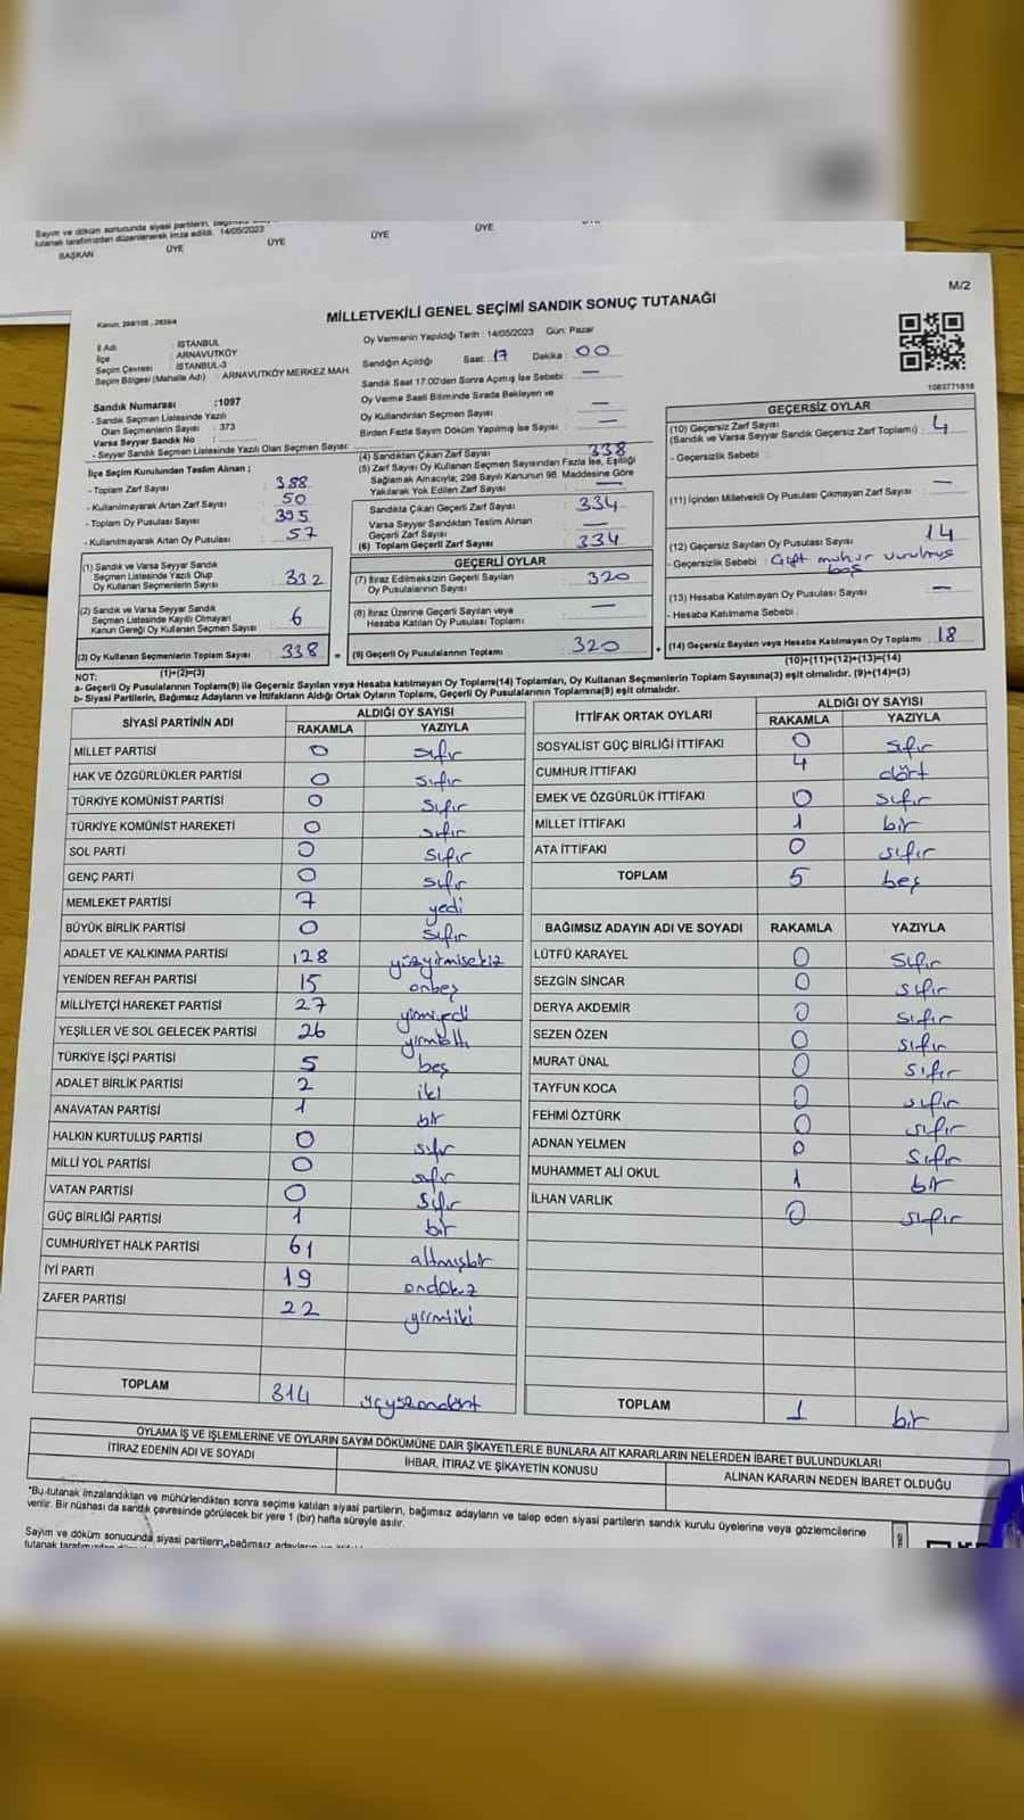 Sayım ve döküm sonucunda siyasi partilerin,
tutanak tarafımızdan düzenlenerek imza edildi. 14/05/2023
BAŞKAN ÜYE ÜYE ÜYE ÜYE
M/2
MİLLETVEKİLİ GENEL SEÇİMİ SANDIK SONUÇ TUTANAĞI
İl Adı : İSTANBUL
İlçe : ARNAVUTKÖY
Seçim Çevresi : İSTANBUL-3
Seçim Bölgesi (Mahalle Adı) : ARNAVUTKÖY MERKEZ MAH.
Oy Vermenin Yapıldığı Tarih : 14/05/2023 Gün: Pazar
Sandığın Açıldığı Saat: 17 Dakika 00
Sandık Saat 17:00'den Sonra Açılmış İse Sebebi: —
Oy Verme Saati Bitiminde Sırada Bekleyen ve
Oy Kullandırılan Seçmen Sayısı —
Birden Fazla Sayım Döküm Yapılmış İse Sayısı : —
Sandık Numarası :1097
- Sandık Seçmen Listesinde Yazılı
Olan Seçmenlerin Sayısı : 373
Varsa Seyyar Sandık No :
- Seyyar Sandık Seçmen Listesinde Yazılı Olan Seçmen Sayısı:
İlçe Seçim Kurulundan Teslim Alınan ;
- Toplam Zarf Sayısı 388
- Kullanılmayarak Artan Zarf Sayısı 50
- Toplam Oy Pusulası Sayısı 395
- Kullanılmayarak Artan Oy Pusulası 57
(1) Sandık ve Varsa Seyyar Sandık
Seçmen Listesinde Yazılı Olup
Oy Kullanan Seçmenlerin Sayısı 332
(2) Sandık ve Varsa Seyyar Sandık
Seçmen Listesinde Kayıtlı Olmayan
Kanun Gereği Oy Kullanan Seçmen Sayısı 6
(3) Oy Kullanan Seçmenlerin Toplam Sayısı 338
(1)+(2)=(3)
(4) Sandıktan Çıkan Zarf Sayısı 338
(5) Zarf Sayısı Oy Kullanan Seçmen Sayısından Fazla İse, Eşitliği
Sağlamak Amacıyla; 298 Sayılı Kanunun 98. Maddesine Göre
Yakılarak Yok Edilen Zarf Sayısı —
Sandıkta Çıkan Geçerli Zarf Sayısı 334
Varsa Seyyar Sandıktan Teslim Alınan
Geçerli Zarf Sayısı —
(6) Toplam Geçerli Zarf Sayısı 334
GEÇERLİ OYLAR
(7) İtiraz Edilmeksizin Geçerli Sayılan
Oy Pusulalarının Sayısı 320
(8) İtiraz Üzerine Geçerli Sayılan veya
Hesaba Katılan Oy Pusulası Toplamı —
= (9) Geçerli Oy Pusulalarının Toplamı 320
1063771818
GEÇERSİZ OYLAR
(10) Geçersiz Zarf Sayısı 4
(Sandık ve Varsa Seyyar Sandık Geçersiz Zarf Toplamı)
- Geçersizlik Sebebi :
(11) İçinden Milletvekili Oy Pusulası Çıkmayan Zarf Sayısı —
(12) Geçersiz Sayılan Oy Pusulası Sayısı 14
- Geçersizlik Sebebi : Çift mühür vurulmuş
boş
(13) Hesaba Katılmayan Oy Pusulası Sayısı —
- Hesaba Katılmama Sebebi :
+ (14) Geçersiz Sayılan veya Hesaba Katılmayan Oy Toplamı 18
(10)+(11)+(12)+(13)=(14)
NOT:
a- Geçerli Oy Pusulalarının Toplamı(9) ile Geçersiz Sayılan veya Hesaba katılmayan Oy Toplamı(14) Toplamları, Oy Kullanan Seçmenlerin Toplam Sayısına(3) eşit olmalıdır. (9)+(14)=(3)
b- Siyasi Partilerin, Bağımsız Adayların ve İttifakların Aldığı Ortak Oyların Toplamı, Geçerli Oy Pusulalarının Toplamına(9) eşit olmalıdır.
SİYASİ PARTİNİN ADI ALDIĞI OY SAYISI
RAKAMLA YAZIYLA
MİLLET PARTİSİ 0 sıfır
HAK VE ÖZGÜRLÜKLER PARTİSİ 0 sıfır
TÜRKİYE KOMÜNİST PARTİSİ 0 sıfır
TÜRKİYE KOMÜNİST HAREKETİ 0 sıfır
SOL PARTİ 0 sıfır
GENÇ PARTİ 0 sıfır
MEMLEKET PARTİSİ 7 yedi
BÜYÜK BİRLİK PARTİSİ 0 sıfır
ADALET VE KALKINMA PARTİSİ 128 yüzyirmisekiz
YENİDEN REFAH PARTİSİ 15 onbeş
MİLLİYETÇİ HAREKET PARTİSİ 27 yirmiyedi
YEŞİLLER VE SOL GELECEK PARTİSİ 26 yirmialtı
TÜRKİYE İŞÇİ PARTİSİ 5 beş
ADALET BİRLİK PARTİSİ 2 iki
ANAVATAN PARTİSİ 1 bir
HALKIN KURTULUŞ PARTİSİ 0 sıfır
MİLLİ YOL PARTİSİ 0 sıfır
VATAN PARTİSİ 0 sıfır
GÜÇ BİRLİĞİ PARTİSİ 1 bir
CUMHURİYET HALK PARTİSİ 61 altmışbir
İYİ PARTİ 19 ondokuz
ZAFER PARTİSİ 22 yirmiiki
TOPLAM 314 üçyüzondört
İTTİFAK ORTAK OYLARI ALDIĞI OY SAYISI
RAKAMLA YAZIYLA
SOSYALİST GÜÇ BİRLİĞİ İTTİFAKI 0 sıfır
CUMHUR İTTİFAKI 4 dört
EMEK VE ÖZGÜRLÜK İTTİFAKI 0 sıfır
MİLLET İTTİFAKI 1 bir
ATA İTTİFAKI 0 sıfır
TOPLAM 5 beş
BAĞIMSIZ ADAYIN ADI VE SOYADI RAKAMLA YAZIYLA
LÜTFÜ KARAYEL 0 sıfır
SEZGİN SİNCAR 0 sıfır
DERYA AKDEMİR 0 sıfır
SEZEN ÖZEN 0 sıfır
MURAT ÜNAL 0 sıfır
TAYFUN KOCA 0 sıfır
FEHMİ ÖZTÜRK 0 sıfır
ADNAN YELMEN 0 sıfır
MUHAMMET ALİ OKUL 1 bir
İLHAN VARLIK 0 sıfır
TOPLAM 1 bir
OYLAMA İŞ VE İŞLEMLERİNE VE OYLARIN SAYIM DÖKÜMÜNE DAİR ŞİKAYETLERLE BUNLARA AİT KARARLARIN NELERDEN İBARET BULUNDUKLARI
İTİRAZ EDENİN ADI VE SOYADI İHBAR, İTİRAZ VE ŞİKAYETİN KONUSU ALINAN KARARIN NEDEN İBARET OLDUĞU
*Bu tutanak imzalandıktan ve mühürlendikten sonra seçime katılan siyasi partilerin, bağımsız adayların ve talep eden siyasi partilerin sandık kurulu üyelerine veya gözlemcilerine
verilir. Bir nüshası da sandık çevresinde görülecek bir yere 1 (bir) hafta süreyle asılır.
Sayım ve döküm sonucunda siyasi partilerin, bağımsız adayların
tutanak